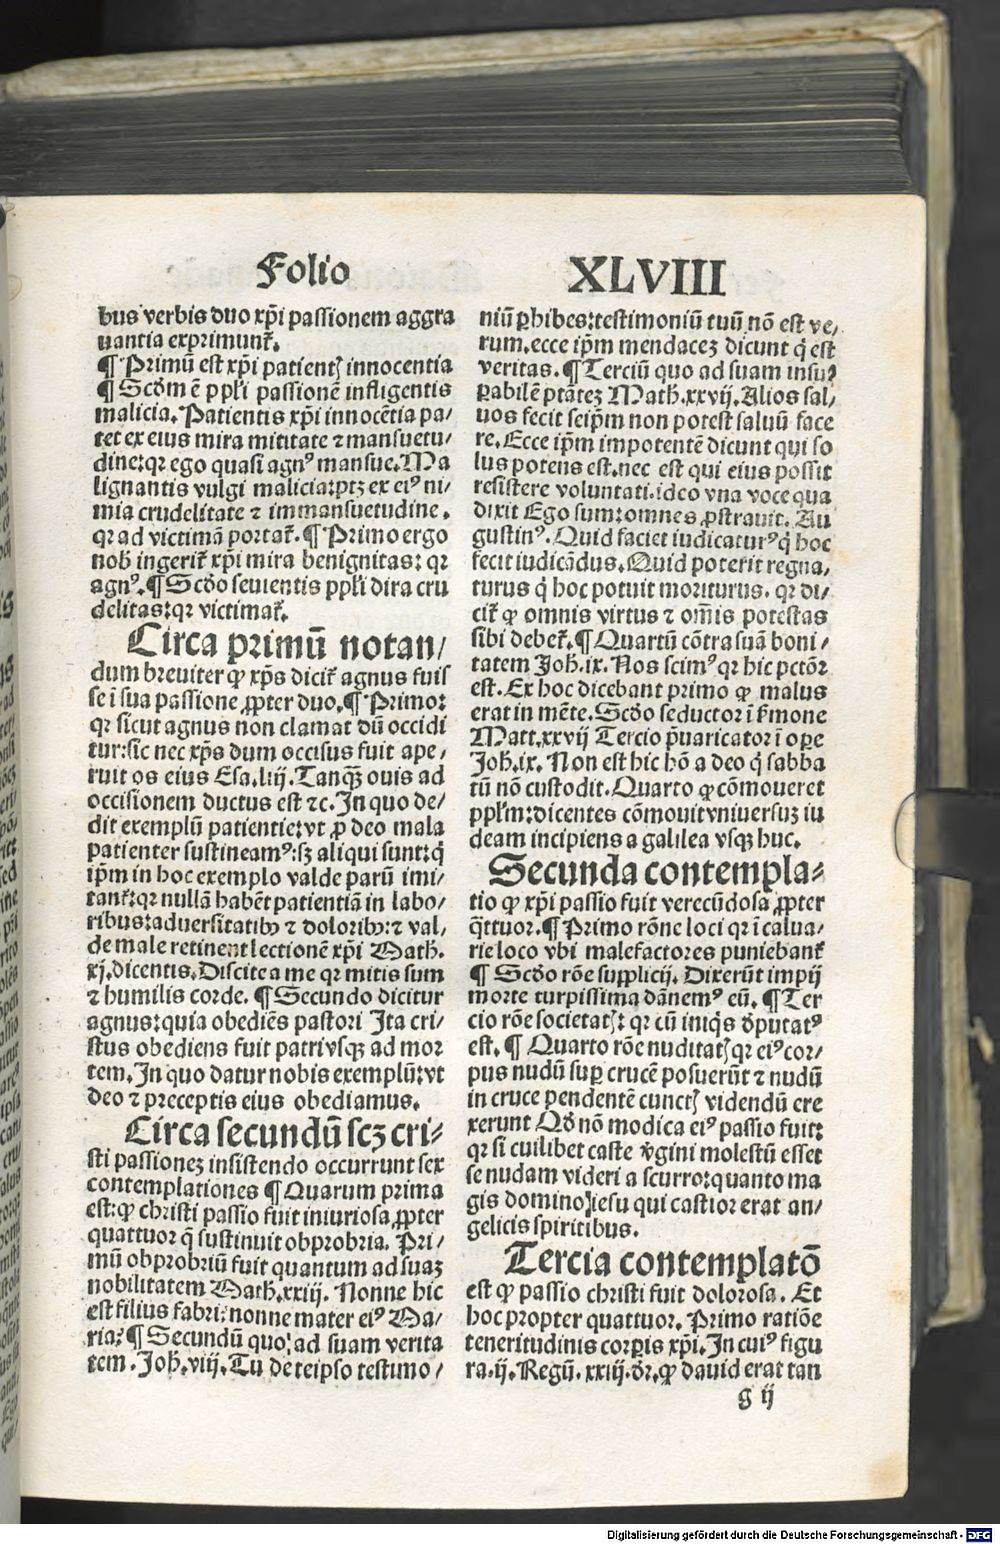 Folio XLVIII
bus verbis duo xp̄i passionem aggra
uantia exprimunt᷑.
¶ Primū est xp̄i patientꝭ innocentia
¶ Scd̄m ē ppl̄i passionē infligentis
malicia. Patientis xp̄i innocētia pa/
tet ex eius mira mititate ⁊ mansuetu/
dine:qꝛ ego quasi agnꝰ mansue. Ma
lignantis vulgi malicia:ptꝫ ex eiꝰ ni/
mia crudelitate ⁊ immansuetudine.
qꝛ ad victimā portat᷑. ¶ Primo ergo
nob̄ ingerit᷑ xp̄i mira benignitas: qꝛ
agnꝰ. ¶ Scd̄o seuientis ppl̄i dira cru
delitas:qꝛ victimat᷑.
Circa primū notan/
dum breuiter ꝙ xp̄s dicit᷑ agnus fuis
se ī sua passione ꝓpter duo. ¶ Primo:
qꝛ sicut agnus non clamat dū occidi
tur:sic nec xp̄s dum occisus fuit ape/
ruit os eius Esa.liij. Tanqꝫ ouis ad
occisionem ductus est ⁊c. In quo de/
dit exemplū patientie:vt ꝓ deo mala
patienter sustineamꝰ:sꝫ aliqui sunt:q̇
ip̄m in hoc exemplo valde parū imi/
tant᷑:qꝛ nullā habēt patientiā in labo/
ribus:aduersitatibꝰ ⁊ doloribꝰ:⁊ val/
de male retinent lectionē xp̄i Math.
xj. dicentis. Discite a me qꝛ mitis sum
⁊ humilis corde. ¶ Secundo dicitur
agnus:quia obediēs pastori Ita cri/
stus obediens fuit patri vsqꝫ ad mor
tem. In quo datur nobis exemplū:vt
deo ⁊ preceptis eius obediamus.
Circa secundū scꝫ cri-
sti passioneꝫ insistendo occurrunt sex
contemplationes ¶ Quarum prima
est:ꝙ christi passio fuit iniuriosa ꝓpter
quattuor q̄ sustinuit obprobria. Pri/
mū obprobriū fuit quantum ad suaꝫ
nobilitatem Math.xxiij. Nonne hic
est filius fabri: nonne mater eiꝰ Ma/
ria? ¶ Secundū quo ad suam verita
tem. Joh̄.viij. Tu de teipso testimo/
niū ꝑhibes:testimoniū tuū nō est ve/
rum.ecce ip̄m mendaceꝫ dicunt q̇ est
veritas. ¶ Terciū quo ad suam insu
ꝑabilē ptāteꝫ Math.xxvij. Alios sal/
uos fecit seip̄m non potest saluū face
re. Ecce ip̄m impotentē dicunt qui so
lus potens est.nec est qui eius possit
resistere voluntati.ideo vna voce qua
dixit Ego sum:omnes ꝓstrauit. Au
gustinꝰ. Quid faciet iudicaturꝰ q̇ hoc
fecit iudicādus. Quid poterit regna/
turus q̇ hoc potuit moriturus. qꝛ di/
cit᷑ ꝙ omnis virtus ⁊ om̄is potestas
sibi debet᷑. ¶ Quartū cōtra suā boni/
tatem Joh̄.ix. Nos scimꝰ qꝛ hic pctōr
est. Ex hoc dicebant primo ꝙ malus
erat in mēte. Scd̄o seductor ī s̄mone
Matt.xxvij Tercio p̄uaricator ī oꝑe
Joh̄.ix. Non est hic hō a deo q̇ sabba
tū nō custodit. Quarto ꝙ cōmoueret
ppl̄m:dicentes cōmouit vniuersuꝫ iu
deam incipiens a galilea vsqꝫ huc.
Secunda contempla-
tio ꝙ xp̄i passio fuit verecūdosa ꝓpter
q̄ttuor. ¶ Primo rōne loci qꝛ ī calua/
rie loco vbi malefactores puniebant᷑
¶ Scd̄o rōe supplicij. Dixerūt impij
morte turpissima dānemꝰ eū. ¶ Ter
cio rōe societatꝭ: qꝛ cū iniq̇s d̄putatꝰ
est. ¶ Quarto rōe nuditatꝭ qꝛ eiꝰ cor/
pus nudū suꝑ crucē posuerūt ⁊ nudū
in cruce pendentē cunctꝭ videndū ere
xerunt Qd̄ nō modica eiꝰ passio fuit:
qꝛ si cuilibet caste v̄gini molestū esset
se nudam videri a scurro:quanto ma
gis domino iesu qui castior erat an/
gelicis spiritibus.
Tercia contemplatō
est ꝙ passio christi fuit dolorosa. Et
hoc propter quattuor. Primo ratiōe
teneritudinis corꝑis xp̄i. In cuiꝰ figu
ra.ij. Regū. xxiij.dr̄.ꝙ dauid erat tan
g ij
Digitalisierung gefördert durch die Deutsche Forschungsgemeinschaft - DFG